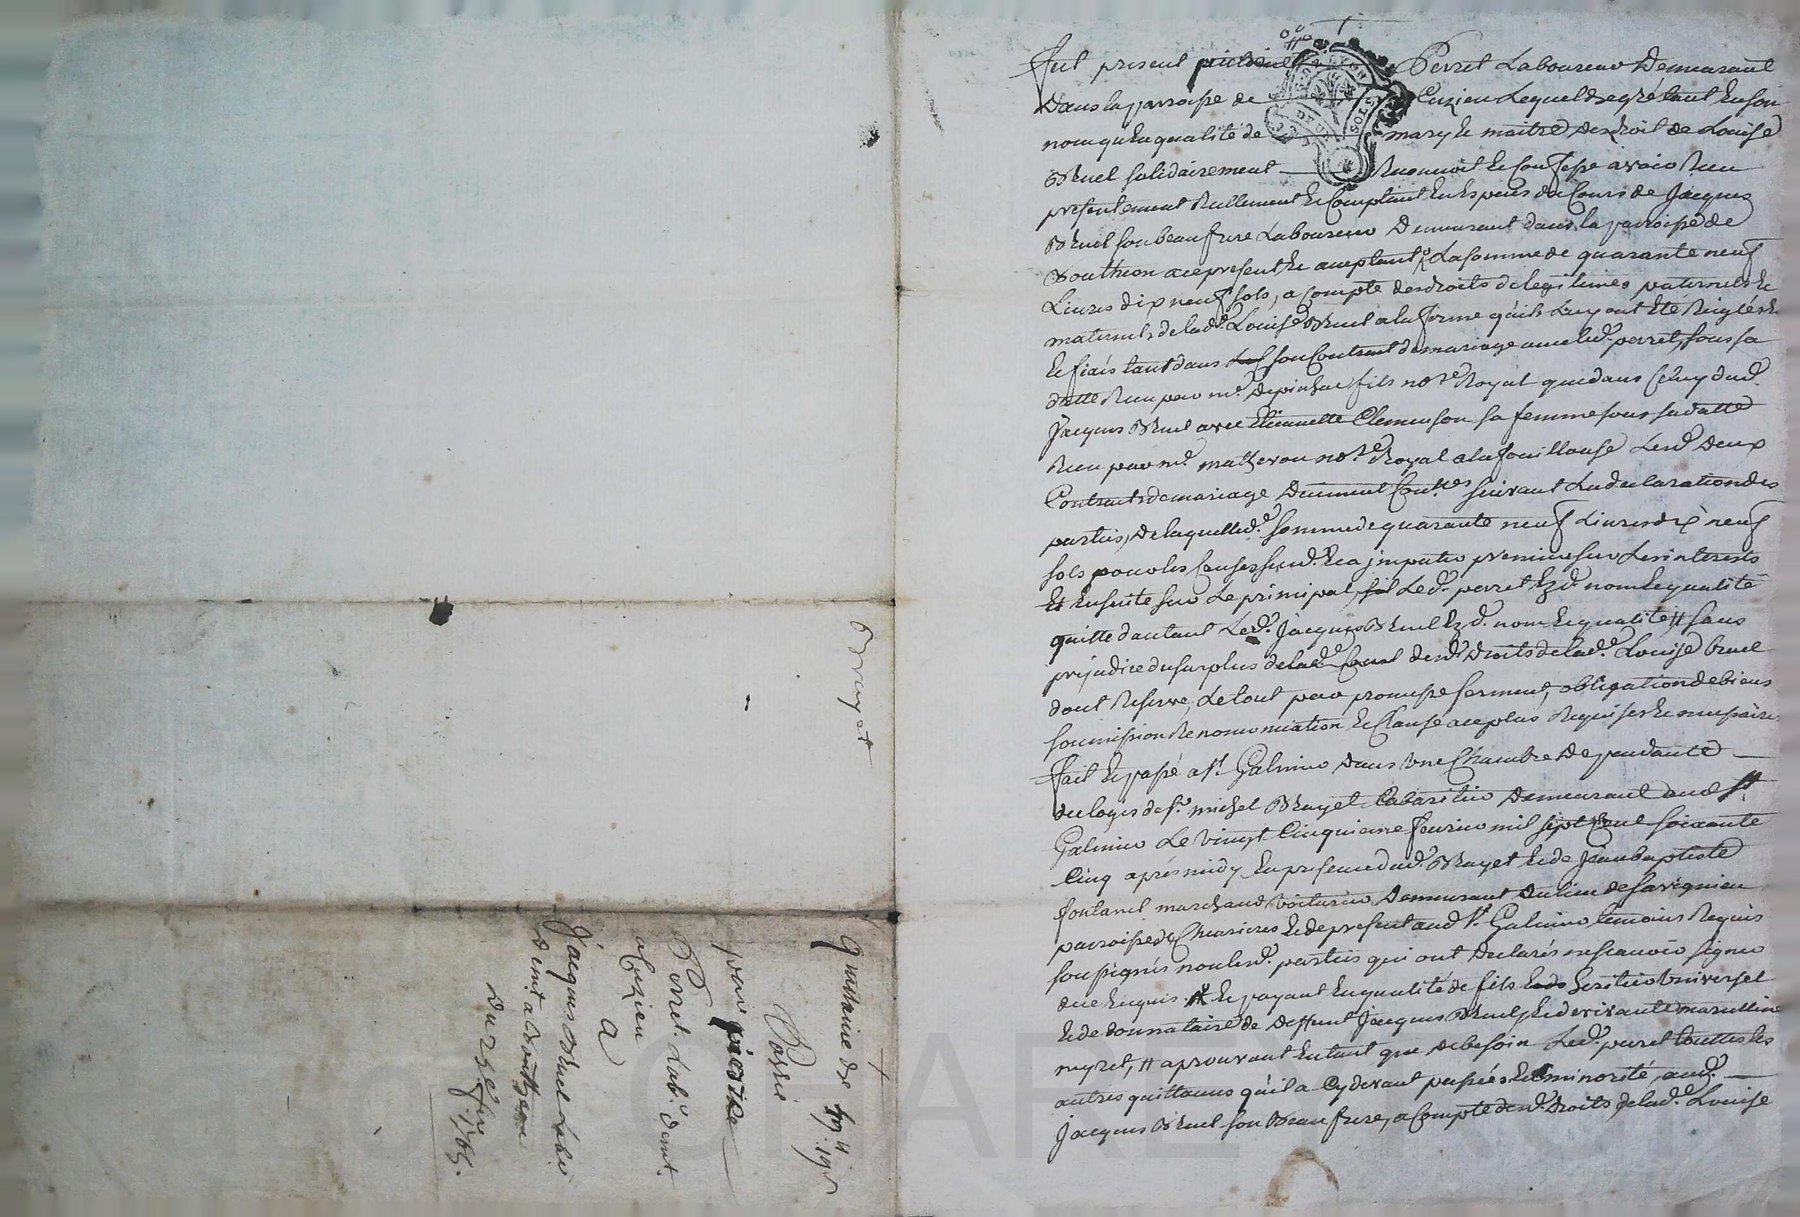 Fut present pierre Perret Laboureur Demeurant
Dans la parroisse de Cuzieu Lequel de gré tant En son
nom qu'En qualité de mary Et maitre des droit de Louise
Bruel solidairement Reconnoit Et Confesse avoir Reçu
presentement Reellement Et Comptant En Espèces du Cours de Jacques
Bruel son beau frere Laboureur Demeurant dans la parroisse de
Bouthéon ace present Et aceptant La somme de quarante neuf
Livres dix neuf sols, a compte des droits de legitimes paternels Et
maternels de lad.e Louise Bruel a la forme qu'ils Luy ont Eté Reiglés
Et fiancé tant dans son Contrant de mariage avec led. perret, sous sa
datte Reçu par m.e Depinhac fils no.re Royal que dans Celuy dud.
Jacques Bruel avec Etiennette Clemenson sa femme sous sa datte
Reçu par m.e Matheron no.re Royal a la fouillouse Lesd. Deux
Contrants de mariage Duement Con.lés suivant La declaration des
parties, De laquelle d.e somme de quarante neuf Livres dix neuf
sols pour les Causes susd. Et a imputer premier sur Les interests
Et Ensuite sur Le principal, Led. perret Ezd. nom Et qualité
quitte d'autant Led. Jacques Bruel Ezd. nom Et qualité # sans
prejudice du surplus desd. Droits de lad.e Louise Bruel
dont Reserve, Le tout par promesse serment, obligation de biens
soumission Renonciation Et Clause aceplus Requises Et necessaires
Fait Et passé a S.t Galmier Dans Une Chambre Dependante
du logis de s.r michel Brayet Cabaretier Demeurant aud. S.t
Galmier Le Vingt Cinquieme fevrier mil sept Cent soixante
Cinq après midy, En presence dud. Brayet Et de Jean baptiste
fontanel marchand Voiturier Demeurant Du lieu de Savignieu
parroisse de Et de present aud. S.t Galmier temoins Requis
soussignés non lesd. parties qui ont Declarés ne sçavoir signer
de ce Enquis. # Et payant En qualité de fils Heritier Universel
Et de donnataire de Deffunt Jacques Bruel, Et de vivante marcelline
neyret, # aprouvant En tant que De besoin Led. perret touttes les
autres quittances qu'il a Cy devant passées En minorité, aud.
Jacques Bruel son Beau frere, a Compte desd. Droits de lad. Louise
Brayet
Quittance de 49 # 19 s
Passé
par pierre
Perret Lab.r dem.t
a Cuzieu
A
Jacques Bruel Labr
dem.t a Bouthéon
Du 25.e fev.r
1765.